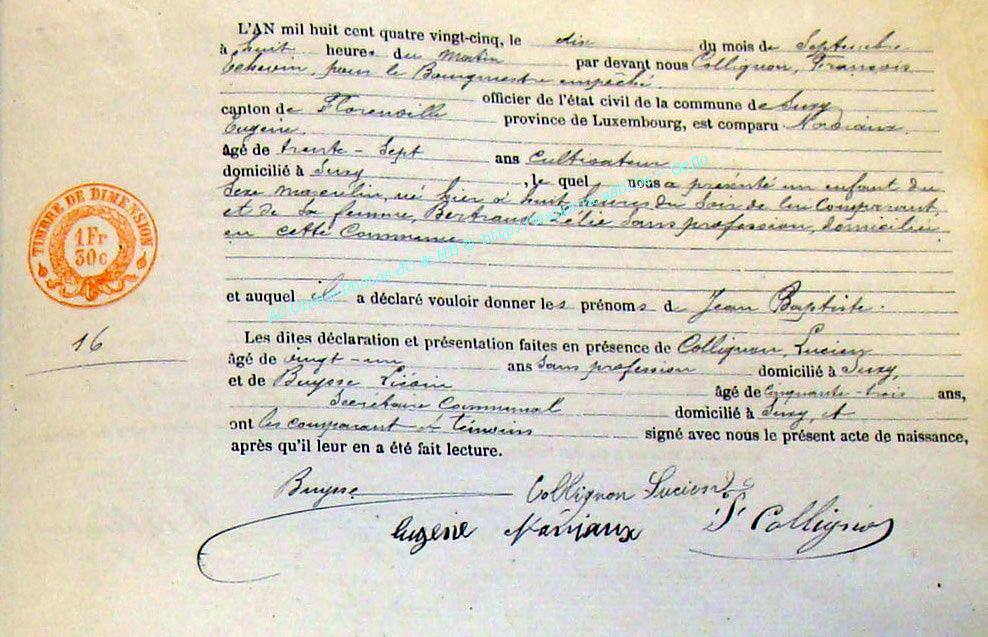 L'AN mil huit cent quatre vingt-cinq, le dix du mois de Septembre
à huit heures du matin par devant nous Collignon, François
Echevin, pour le Bourgmestre empêché.
officier de l'état civil de la commune de Suxy
canton de Florenville province de Luxembourg, est comparu
Eugène.
âgé de trente-sept ans Cultivateur
domicilié à Suxy, le quel nous a présenté un enfant du
Sexe masculin, né hier à huit heures du Soir de lui Comparant,
et de Sa femme, Bertrand Sans profession, domiciliée
en cette Commune
et auquel il a déclaré vouloir donner les prénoms de Jean Baptiste.
Les dites déclaration et présentation faites en présence de Collignon, Lucien
âgé de vingt-un ans Sans profession domicilié à Suxy,
et de Buysse âgé de Cinquante-trois ans,
Secrétaire Communal domicilié à Suxy, et
ont les comparant et témoins signé avec nous le présent acte de naissance,
après qu'il leur en a été fait lecture.
TIMBRE DE DIMENSION
1 Fr
30 c
16
Buysse Collignon Lucien
Eugène F Collignon